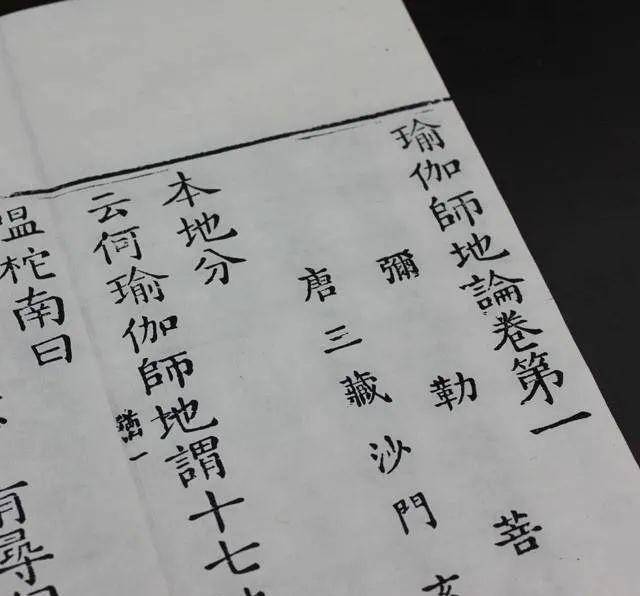 瑜伽師地論卷第一
彌勒菩
唐三藏沙門玄
本地分
云何瑜伽師地謂十七
嗢柁南曰
有尋